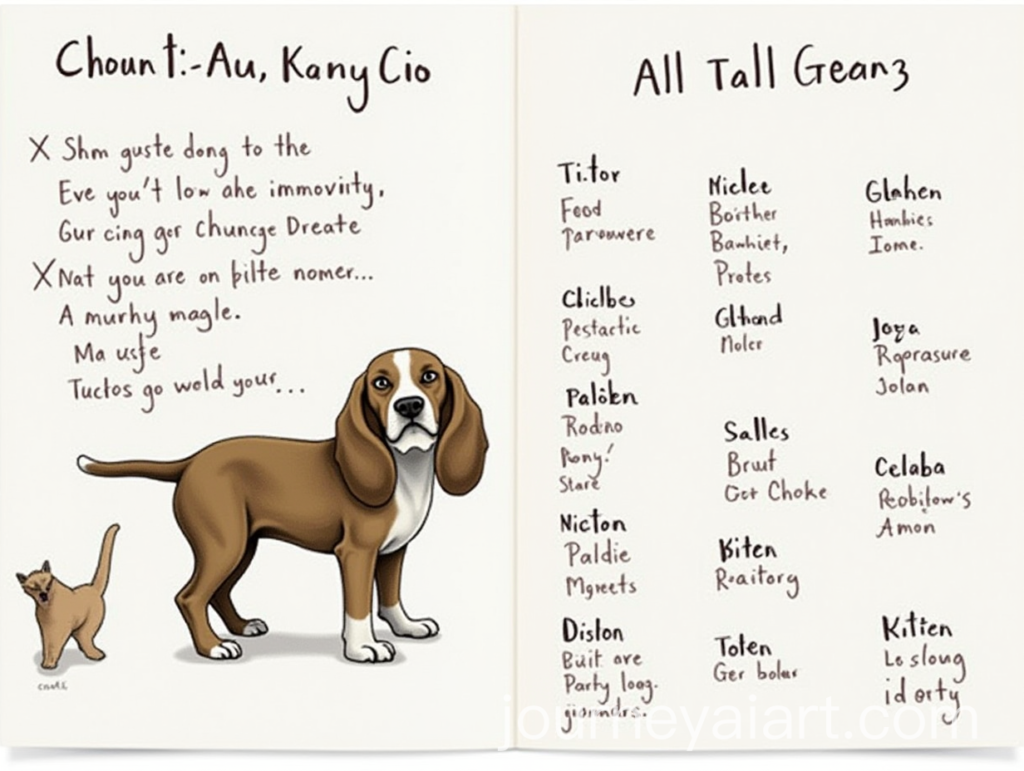 Chount:-Au, Kany Cio
X Shm guste dong to the
Eve you't low ahe immoviity,
Gur cing gor Chuncge Dreate
X Nat you are on pilte nomer...
A murhy magle.
Ma usfe
Tuctos go wold your...
All Tall Gearz
Ti.tor
Food
Cliclbes
Pestactic
Creug
Paloken
Rodno
Rony!
Stare
Nicton
Paldie
Mgreets
Diston
Buit are
Party loog.
Miclee
Boither
Bawhiet,
Protes
Glthond
Noler
Salles
Brwt
Got Choke
Kiten
Roaitory
Toten
Ger boler
Glahen
Hanbies
Iome.
Joya
Roprasure
Jolan
Celaba
Reobilow's
Amon
Kitien
Lo sloug
id orty
journeyaiart.com